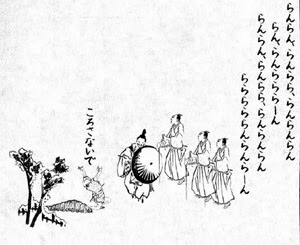 らんらん、らんらら、らんらんらん
らん、らんららーん
らんらんらん、らんらら、らんらんらん
ら、ららららんらんらーん
ころさないで